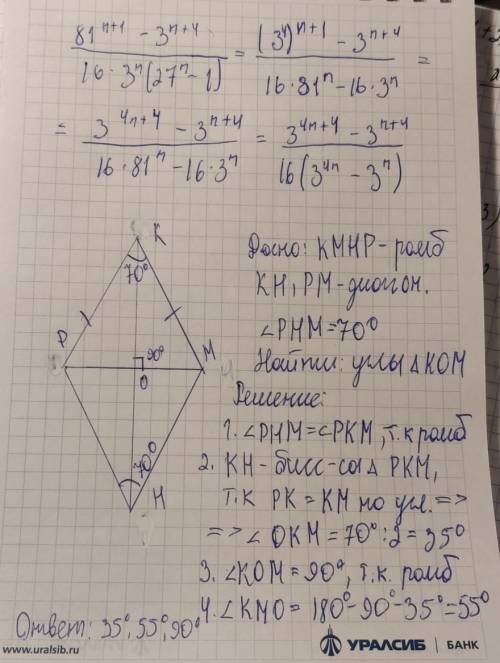 (81^(n+1) − 3^(n+4)) / (16 · 3^n (27^n − 1)) = ((3^4)^(n+1) − 3^(n+4)) / (16 · 81^n − 16 · 3^n) =
= (3^(4n+4) − 3^(n+4)) / (16 · 81^n − 16 · 3^n) = (3^(4n+4) − 3^(n+4)) / (16(3^(4n) − 3^n))
K
70°
P
90°
M
O
70°
H
Дано: KMHP - ромб
KH, PM - диагон.
∠PHM = 70°
Найти: углы ΔKOM
Решение:
1. ∠PHM = ∠PKM, т.к ромб
2. KH - бисс-са Δ PKM,
т.к PK = KM по усл. =>
=> ∠ OKM = 70° : 2 = 35°
3. ∠KOM = 90°, т.к. ромб
4. ∠KMO = 180° - 90° - 35° = 55°
Ответ: 35°, 55°, 90°
www.uralsib.ru
УРАЛСИБ | БАНК